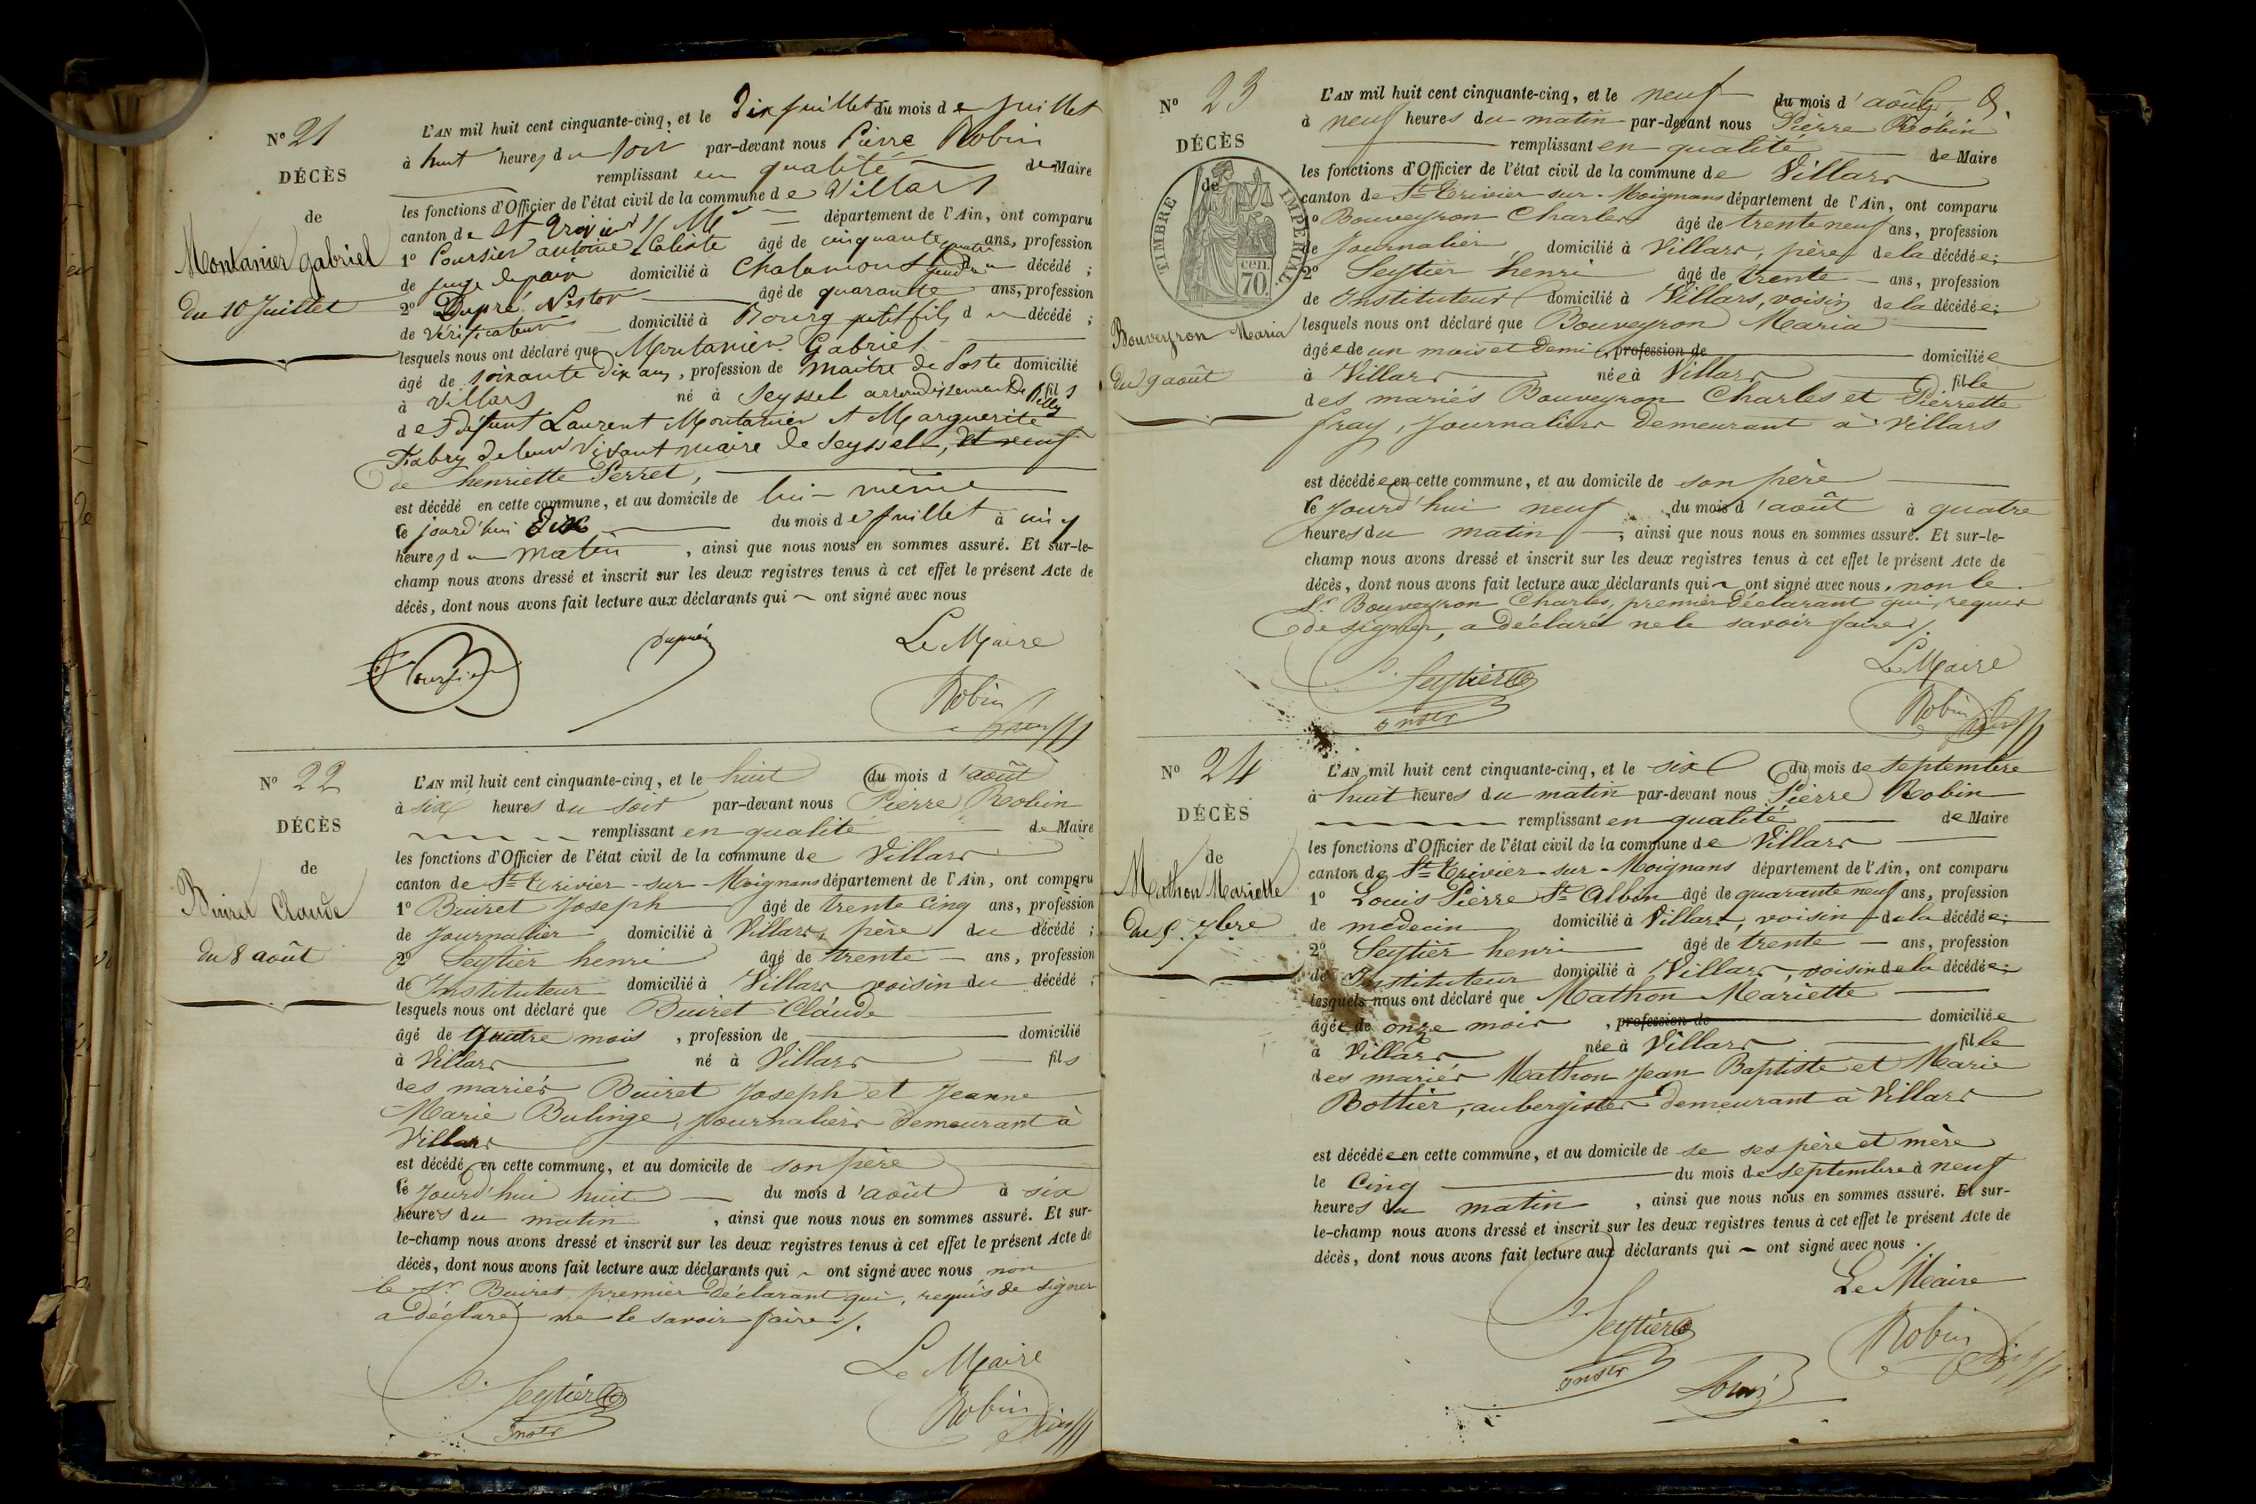 N° 21
DÉCÈS
de
Montanier Gabriel
Du 10 Juillet
L'AN mil huit cent cinquante-cinq, et le Dix juillet du mois de Juillet
à huit heures du soir par-devant nous Pierre Robin
remplissant en qualité de Maire
les fonctions d'Officier de l'état civil de la commune de Villars
canton de St Trivier département de l'Ain, ont comparu
1° Coursier antoine Calixte âgé de cinquante quatre ans, profession
de juge de paix domicilié à Chalamont gendre du décédé ;
2° Dupré Nestor âgé de quarante ans, profession
de Vérificateur domicilié à Bourg petit fils du décédé ;
lesquels nous ont déclaré que Montanier Gabriel
âgé de soixante dix ans, profession de Maître de Poste domicilié
à Villars né à Seyssel arrondissement de Belley fils
de défunt Laurent Montanier et Marguerite
Fabry de leur vivant maire de Seyssel, et veuf
de henriette Perret,
est décédé en cette commune, et au domicile de lui-même
le jourd'hui Dix du mois de juillet à cinq
heures du matin, ainsi que nous nous en sommes assuré. Et sur-le-
champ nous avons dressé et inscrit sur les deux registres tenus à cet effet le présent Acte de
décès, dont nous avons fait lecture aux déclarants qui ~ ont signé avec nous
Le Maire
Robin
N° 22
DÉCÈS
de
Buiret Claude
du 8 août
L'AN mil huit cent cinquante-cinq, et le huit du mois d'août
à six heures du soir par-devant nous Pierre Robin
remplissant en qualité de Maire
les fonctions d'Officier de l'état civil de la commune de Villars
canton de St Trivier-sur-Moignans département de l'Ain, ont comparu
1° Buiret Joseph âgé de trente cinq ans, profession
de Journalier domicilié à Villars, père du décédé ;
2° Seytier henri âgé de trente ans, profession
de Instituteur domicilié à Villars voisin du décédé ;
lesquels nous ont déclaré que Buiret Claude
âgé de quatre mois, profession de domicilié
à Villars né à Villars fils
des mariés Buiret Joseph et Jeanne
Marie Bulinge, journaliers demeurant à
Villars
est décédé en cette commune, et au domicile de son père
le jourd'hui huit du mois d'août à six
heures du matin, ainsi que nous nous en sommes assuré. Et sur-
le-champ nous avons dressé et inscrit sur les deux registres tenus à cet effet le présent Acte de
décès, dont nous avons fait lecture aux déclarants qui ~ ont signé avec nous non
le Sr Buiret, premier déclarant qui, requis de signer
a déclaré ne le savoir faire./.
Le Maire
Seytier
Instr
Robin
N° 23
DÉCÈS
de
TIMBRE IMPERIAL
cen.
70
Bouveyron Maria
du 9 août
L'AN mil huit cent cinquante-cinq, et le neuf du mois d'août
à neuf heures du matin par-devant nous Pierre Robin
remplissant en qualité de Maire
les fonctions d'Officier de l'état civil de la commune de Villars
canton de St Trivier-sur-Moignans département de l'Ain, ont comparu
1° Bouveyron Charles âgé de trente neuf ans, profession
de Journalier domicilié à Villars, père de la décédée ;
2° Seytier henri âgé de trente ans, profession
de Instituteur domicilié à Villars, voisin de la décédée ;
lesquels nous ont déclaré que Bouveyron Maria
âgée de un mois et demi, profession de domiciliée
à Villars née à Villars fille
des mariés Bouveyron Charles et Pierrette
fray, Journaliers demeurant à Villars
est décédée en cette commune, et au domicile de son père
le jourd'hui neuf du mois d'août à quatre
heures du matin, ainsi que nous nous en sommes assuré. Et sur-le-
champ nous avons dressé et inscrit sur les deux registres tenus à cet effet le présent Acte de
décès, dont nous avons fait lecture aux déclarants qui ~ ont signé avec nous, non le
Sr Bouveyron Charles, premier déclarant qui, requis
de signer, a déclaré ne le savoir faire./.
Le Maire
Seytier
instr
Robin
N° 24
DÉCÈS
de
Mathon Mariette
Du 5. 7bre
L'AN mil huit cent cinquante-cinq, et le six du mois de septembre
à huit heures du matin par-devant nous Pierre Robin
remplissant en qualité de Maire
les fonctions d'Officier de l'état civil de la commune de Villars
canton de St Trivier-sur-Moignans département de l'Ain, ont comparu
1° Louis Pierre St Albin âgé de quarante neuf ans, profession
de médecin domicilié à Villars, voisin de la décédée ;
2° Seytier henri âgé de trente ans, profession
de Instituteur domicilié à Villars, voisin de la décédée ;
lesquels nous ont déclaré que Mathon Mariette
âgée de onze mois, profession de domiciliée
à Villars née à Villars fille
des mariés Mathon Jean Baptiste et Marie
Bottier, aubergistes demeurant à Villars
est décédée en cette commune, et au domicile de se ses père et mère
le cinq du mois de septembre à neuf
heures du matin, ainsi que nous nous en sommes assuré. Et sur-
le-champ nous avons dressé et inscrit sur les deux registres tenus à cet effet le présent Acte de
décès, dont nous avons fait lecture aux déclarants qui ~ ont signé avec nous./.
Le Maire
Seytier
instr
Robin
Louis